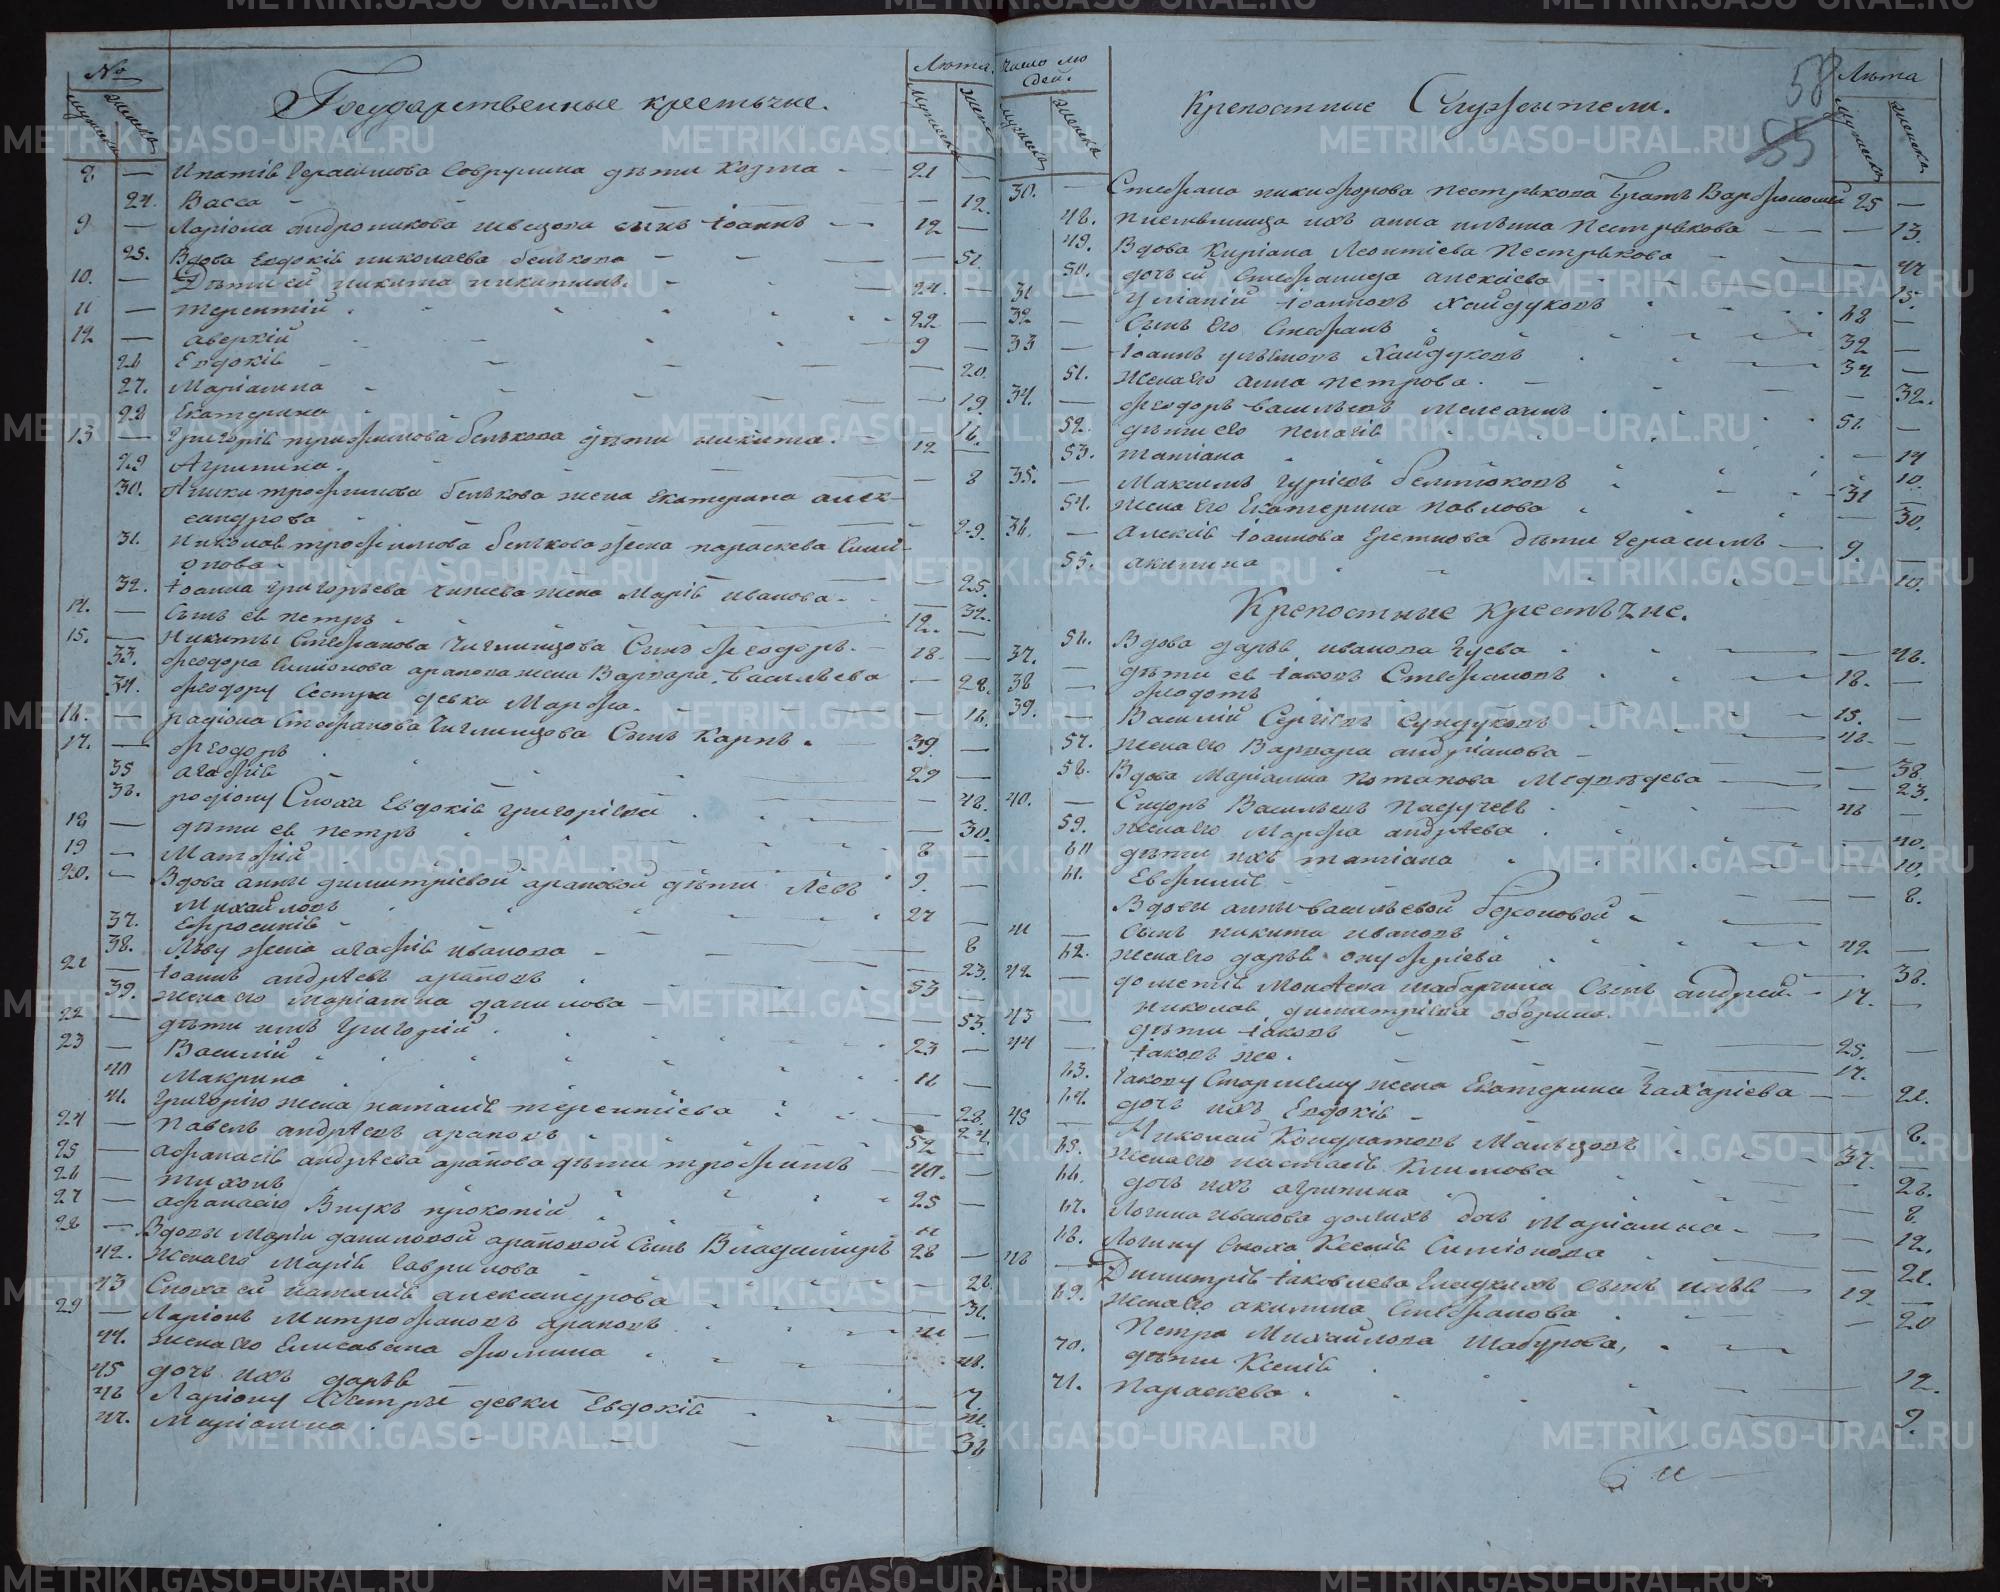 №
мужеска
женска
Государственные крестьяне.
Лета.
мужеска
женска
8. — Ипатія Герасимова дети Козма — 21 —
24. Васса — 12.
9 — Ларіона Андроникова Швецова сынъ Іоаннъ — 12 —
25. Вдова Евдокія Николаева Белькова — 51
10. — Дети ей Никита Никитинъ — 24 —
11 — Терентій 22 —
12 — Аверкій 9 —
26 Евдокія — 20.
27. Маріамна — 19.
28 Екатерина — 16.
13 — Григорія Трифимова Белькова дети Никита. — 12 —
29 Агрипина. — 8
30. Трофимова Белькова жена Екатерина Алек-
сандрова — 29.
31. Николая Трофимова Белькова жена Параскева Сими-
онова — 25.
32. Іоанна Григорьева жена Марія Иванова — 32.
14. — Сынъ ея Петръ 12. —
15. — Никиты Стефанова Сынъ Феодоръ. 18. —
33. Феодора Симіонова Арапова жена Варвара Васильева — 28.
34. Феодору Сестра девка Марфа. — 16.
16. — Радіона Стефанова Сынъ Карпъ. — 39 —
17. — Феодоръ 29 —
35 Агафія — 48.
36. Родіону Сноха Евдокія Григоріева — 30.
18 — дети ея Петръ 8 —
19 — Матфей 9. —
20. — Вдова Анны Димитріевой Араповой дети Левъ
Михайловъ 27 —
37. Ефросинія — 8
38. Льву жена Агафія Иванова — 23.
21 — Іоаннъ Андреевъ Араповъ 53 —
39. Жена его Маріамна Данилова — 53.
22 — дети ихъ Григорій 23 —
23 — Василій 11 —
40 Макрина — 28.
41. Григорію жена Наталія Терентіева — 24.
24 — Павелъ Андреевъ Араповъ 52 —
25 — Афанасія Андреева Арапова дети Трофимъ — 40. —
26 — Тихонъ 25 —
27 — Афанасію Внукъ Прокопій 11
28 — Вдовы Маріи Даниловой Араповой Сынъ Владимиръ 28 —
42. Жена его Марія Гаврилова — 28
43 Сноха ей Наталія Александрова — 31.
29 — Ларіонъ Митрофановъ Араповъ 41 —
44. Жена его Елисавета Фомина — 48.
45 дочь ихъ Дарья — 7.
46 Ларіону Сестры девки Евдокія — 41.
47. Маріамна — 36
Число лю
дей.
мужеска
женска
Крепостные Служители.
58
55
Лета
мужеска
женска
30. — Стефана Никифорова Пестрякова братъ Варфоломей 25 —
48. племянница ихъ Анна Пестрякова — 13.
49. Вдова Киріана Леонтіева Пестрякова — 47
50. дочь ей Стефанида Алексіева — 15.
31 — Іоанновъ Хайдуковъ 68 —
32 — Сынъ его Стефанъ 32 —
33 — Іоаннъ Хайдуковъ 34 —
51. Жена его Анна Петрова. — 32.
34. — Феодоръ Васильевъ 51 —
52. дети его Пелагія — 14
53. Татіана — 10.
35. — Максимъ Гуріевъ 31 —
54. Жена его Екатерина Павлова — 30.
36. — Алексія Іоаннова дети Герасимъ — 9. —
55. Акилина — 10.
Крепостные крестьяне.
56. Вдова Дарья Иванова Гуева — 46.
37. — дети ея Іаковъ Стефановъ 18. —
38 — Федотъ 15. —
39. — Василій Сергіевъ Сундуковъ 48. —
57. Жена его Варвара Андріанова — 38.
58. Вдова Маріамна Потапова Медведева — 23.
40. — Сидоръ Васильевъ 48 —
59. Жена его Марфа Андреева — 40.
60 дети ихъ Татіана — 10.
61. Евфимія — 8.
Вдовы Анны Васильевой
41 — Сынъ Никита Ивановъ 42 —
62. Жена его Дарья Онуфріева — 38.
42 — Дометія Мокеева Шабарчина Сынъ Андрей — 17. —
Николая Димитріева Оборина.
43 — дети Іаковъ — 25. —
44 — Іаковъ же. 17. —
63. Іакову Старшему жена Екатерина Захаріева — 21.
64. дочь ихъ Евдокія — 8.
45 — Николай Кондратовъ Мальцовъ 37. —
65. Жена его Настасія Климова — 28.
66. дочь ихъ Агрипина — 8
67. Логина Иванова дочь Маріамна — 12.
68. Логину Сноха Ксенія Симіонова — 21.
46 — Димитрія Іаковлева Сынъ Илья — 19. —
69. Жена его Акилина Стефанова — 20
Петра Михайлова Шабурова,
70. дети Ксенія — 12.
71. Параскева — 9.